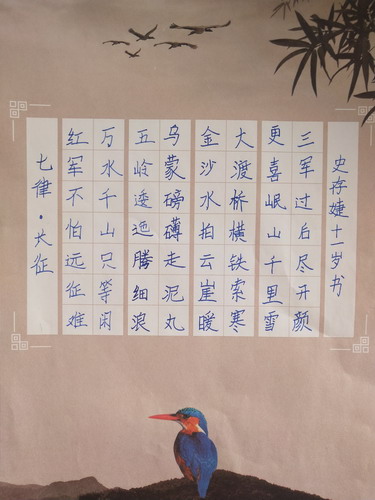 七律·长征
红军不怕远征难
万水千山只等闲
五岭逶迤腾细浪
乌蒙磅礴走泥丸
金沙水拍云崖暖
大渡桥横铁索寒
更喜岷山千里雪
三军过后尽开颜
史存婕十一岁书